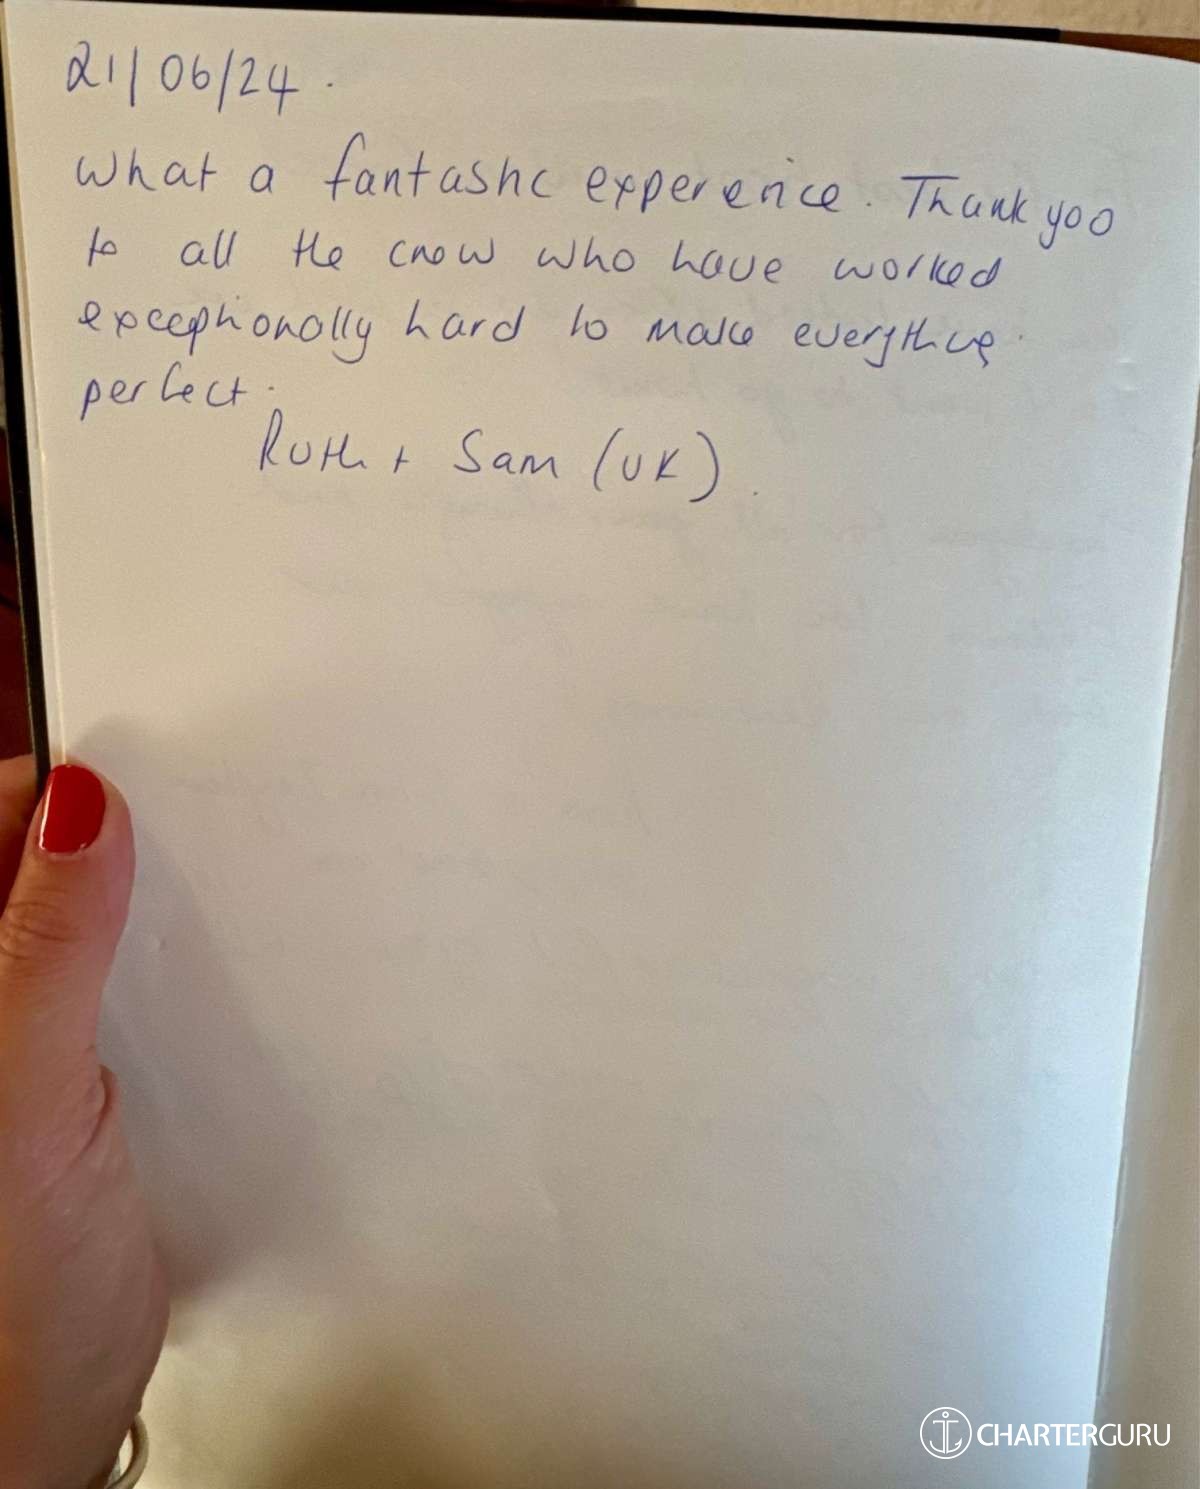 21/06/24.
What a fantastic experience. Thank you
to all the crew who have worked
exceptionally hard to make everything
perfect.
Ruth + Sam (UK).
CHARTERGURU